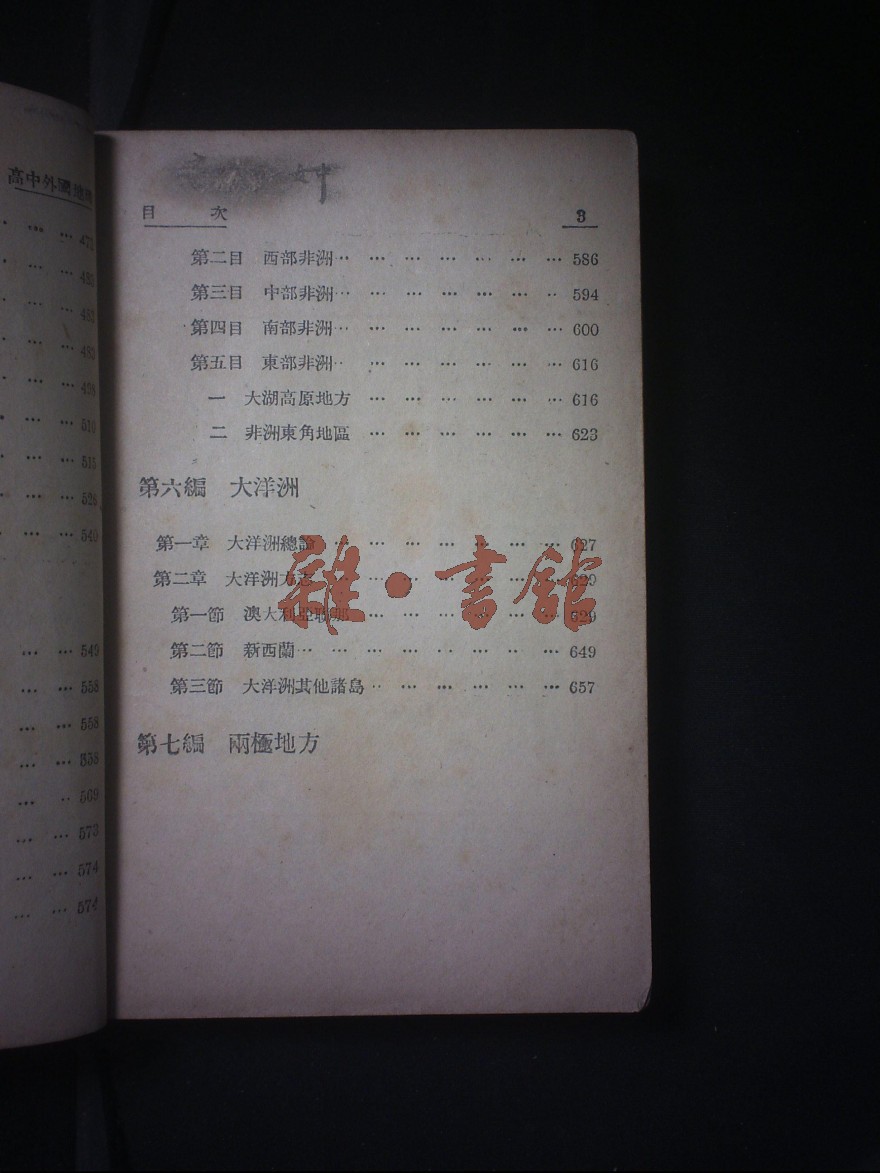 高中外國地理
475
483
498
510
515
526
540
549
558
558
558
569
573
574
574
目 次 3
第二目 西部非洲 … … … … … … … 586
第三目 中部非洲 … … … … … … … 594
第四目 南部非洲 … … … … … … … 600
第五目 東部非洲 … … … … … … … 616
一 大湖高原地方 … … … … … … 616
二 非洲東角地區 … … … … … … 623
第六編 大洋洲
第一章 大洋洲總論 … … … … … … … 627
第二章 大洋洲方志 … … … … … … … 629
第一節 澳大利亞聯邦 … … … … … … 629
第二節 新西蘭 … … … … … … … … 649
第三節 大洋洲其他諸島 … … … … … … 657
第七編 兩極地方
雜·書館